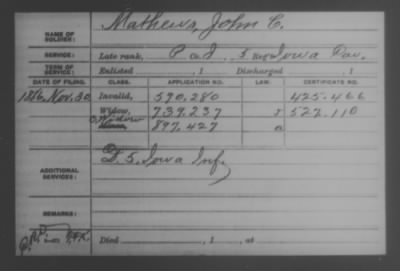 Mathews, John C.
NAME OF SOLDIER:
SERVICE: Late rank, P Co. I, 5 Reg Iowa Cav.
TERM OF SERVICE: Enlisted , 1 Discharged , 1
DATE OF FILING. CLASS. APPLICATION NO. LAW. CERTIFICATE NO.
1886. Nov. 30 Invalid, 590.280 425.466
Widow, 739.237 527.110
C. Widow
Minor, 897.427
ADDITIONAL SERVICES: D. 5. Iowa Inf.
REMARKS:
Died , 1 , at